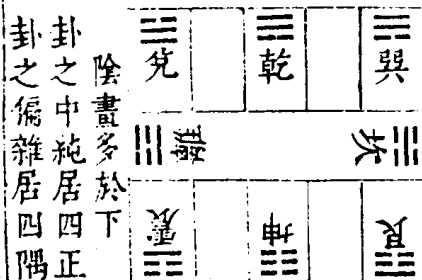 巽
乾
兌
坎
離
艮
坤
震
陰畫多於下
卦之中純居四正
卦之偏雜居四隅